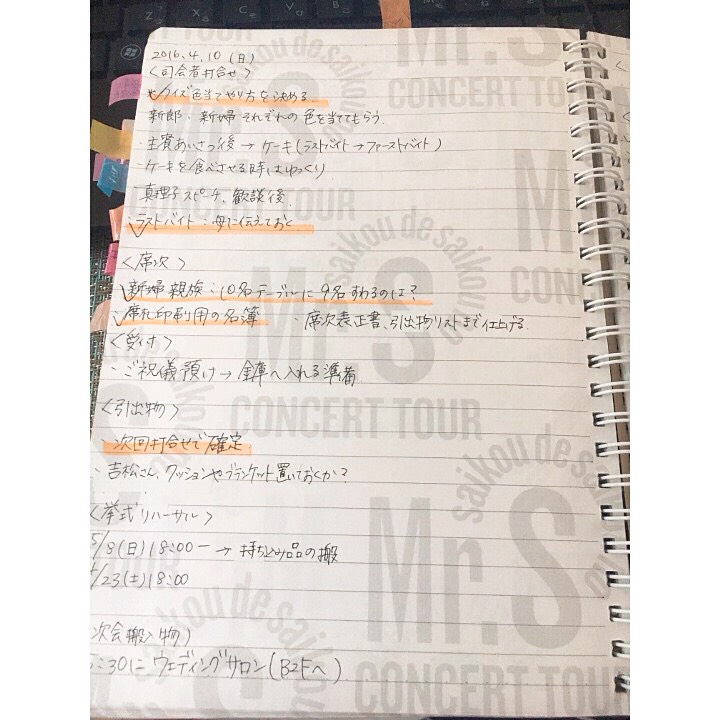 2016.4.10(日)
〈司会者打合せ〉
クイズ色当てやり方を決める
新郎・新婦 それぞれの色を当ててもらう。
・主賓あいさつ後 → ケーキ(ラストバイト→ファーストバイト)
・ケーキを食べさせる時はゆっくり
真理子スピーチ、歓談後、
・ラストバイト…母に伝えておく
〈席次〉
・新婦親族：10名テーブルに9名すわるのは？
・席札印刷用の名簿 ・席次表正書、引出物リストまで仕上げる
〈受付〉
・ご祝儀預け→金庫へ入れる準備
〈引出物〉
・次回打合せで確定
・吉松さん、クッションやブランケット置いておくか？
〈挙式リハーサル〉
5/8(日)18:00ー→持ち込み品の搬
/23(土)18:00
次会搬入物〉
:30にウェディングサロン(B2Fへ)
Mr.S
saikou de saikou de
CONCERT TOUR
Mr.S
saikou de saikou de
CONCERT TOUR
Mr.S
saikou de
CONCERT TOUR